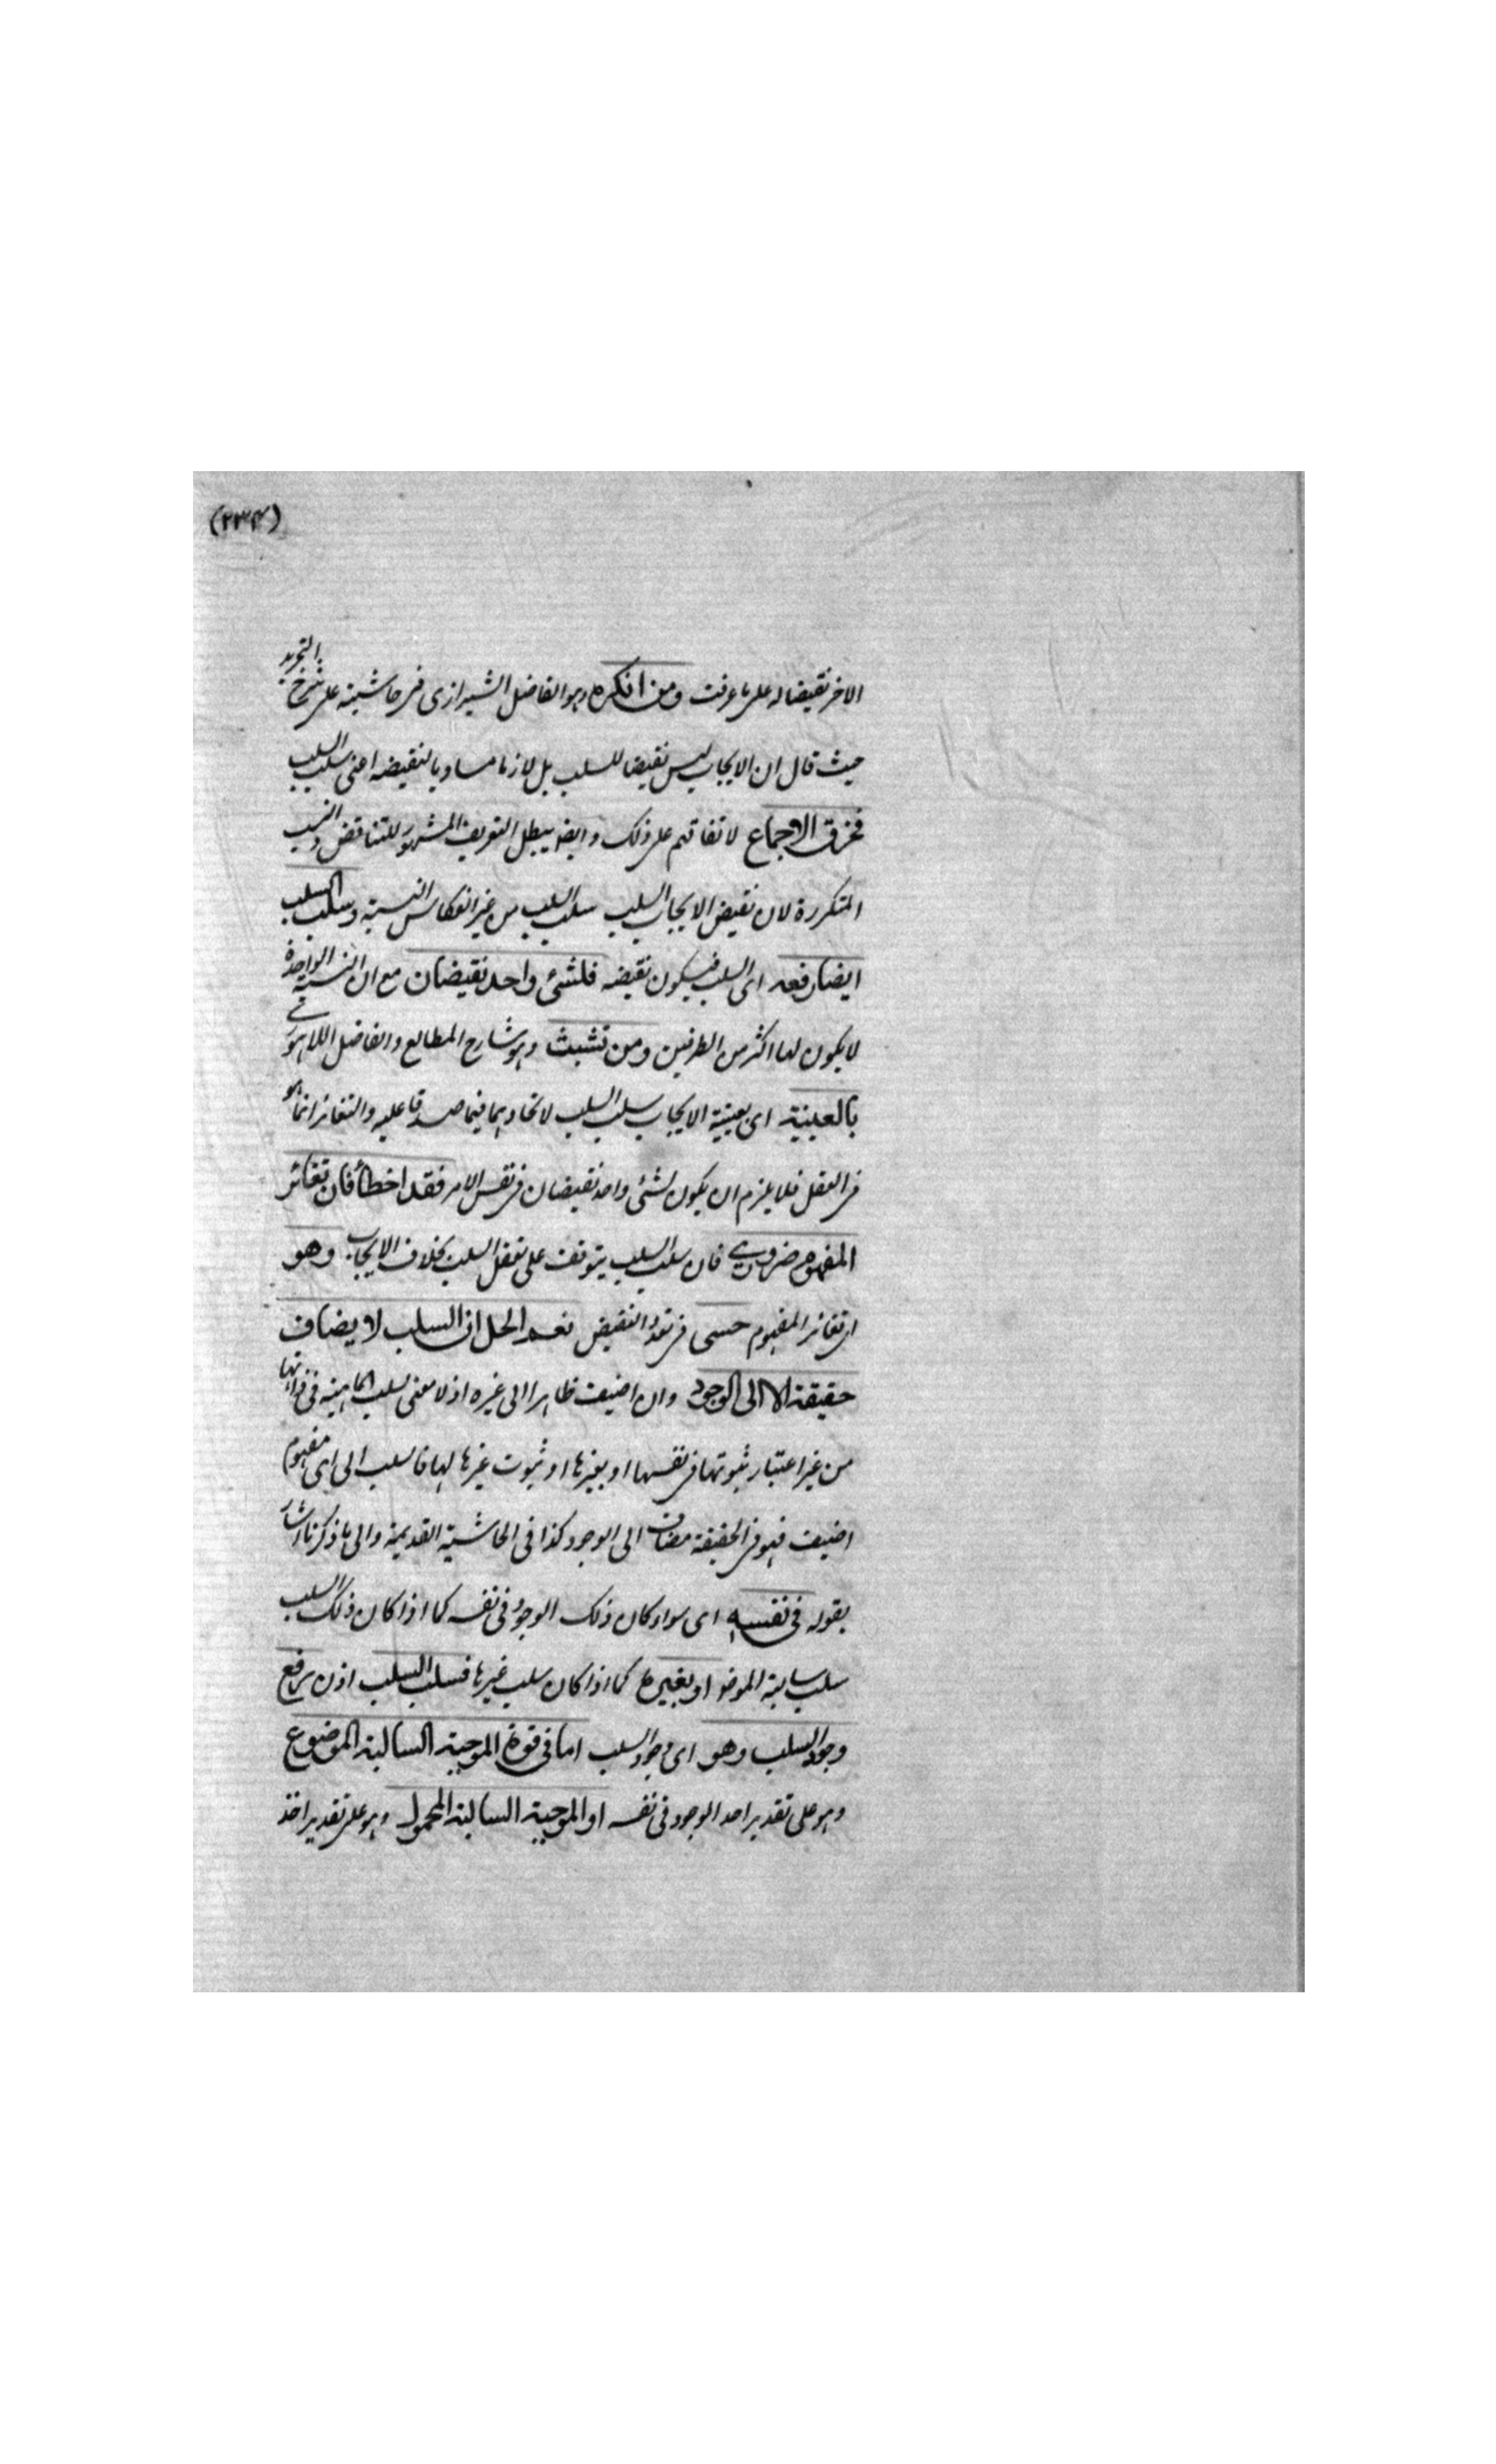 (٢٣٤)
الاخر نقيضا له على ما عرفت ومن انكره وهو الفاضل الشيرازى فى حاشيته على شرح التجريد
حيث قال ان الايجاب ليس نقيضا للسلب بل لازما مساويا لنقيضه اعنى سلب السلب
فخرق الاجماع لاتفاقهم على ذلك وايضا يبطل التعريف المشهور للتناقض والنسب
المتكررة لان نقيض الايجاب السلب سلب السلب من غير انعكاس النسبة وسلب السلب
ايضا رفعه اى السلب فيكون نقيضه فلشئ واحد نقيضان مع ان النسبة الواحدة
لا يكون لها اكثر من الطرفين ومن تشبث وهو شارح المطالع والفاضل اللاهورى
بالعينية اى بعينية الايجاب سلب السلب لاتحادهما فيما صدقا عليه والتغائر انما هو
فى العقل فلا يلزم ان يكون لشئ واحد نقيضان فى نفس الامر فقد اخطأ فان تغائر
المفهوم ضرورى فان سلب السلب يتوقف على تعقل السلب بخلاف الايجاب وهو
اى تغائر المفهوم حسبى فى تعدد النقيض نعم الحل ان السلب لا يضاف
حقيقة الا الى الوجود وان اضيف ظاهرا الى غيره اذ لا معنى لسلب الماهية فى ذاتها
من غير اعتبار ثبوتها فى نفسها او بغيرها او ثبوت غيرها لها فالسلب الى اى مفهوم
اضيف فهو فى الحقيقة مضاف الى الوجود كذا فى الحاشية القديمة والى ما ذكرنا اشار
بقوله فى نفسه اى سواء كان ذلك الوجود فى نفسه كما اذا كان ذلك السلب
سلب سالبة الموضو او بغيرها كما اذا كان سلب غيرها فسلب السلب اذن رفع
وجود السلب وهو اى وجود السلب اما فى قوة الموجبة السالبة الموضوع
وهو على تقدير اخذ الوجود فى نفسه او الموجبة السالبة المحمول وهو على تقدير اخذ